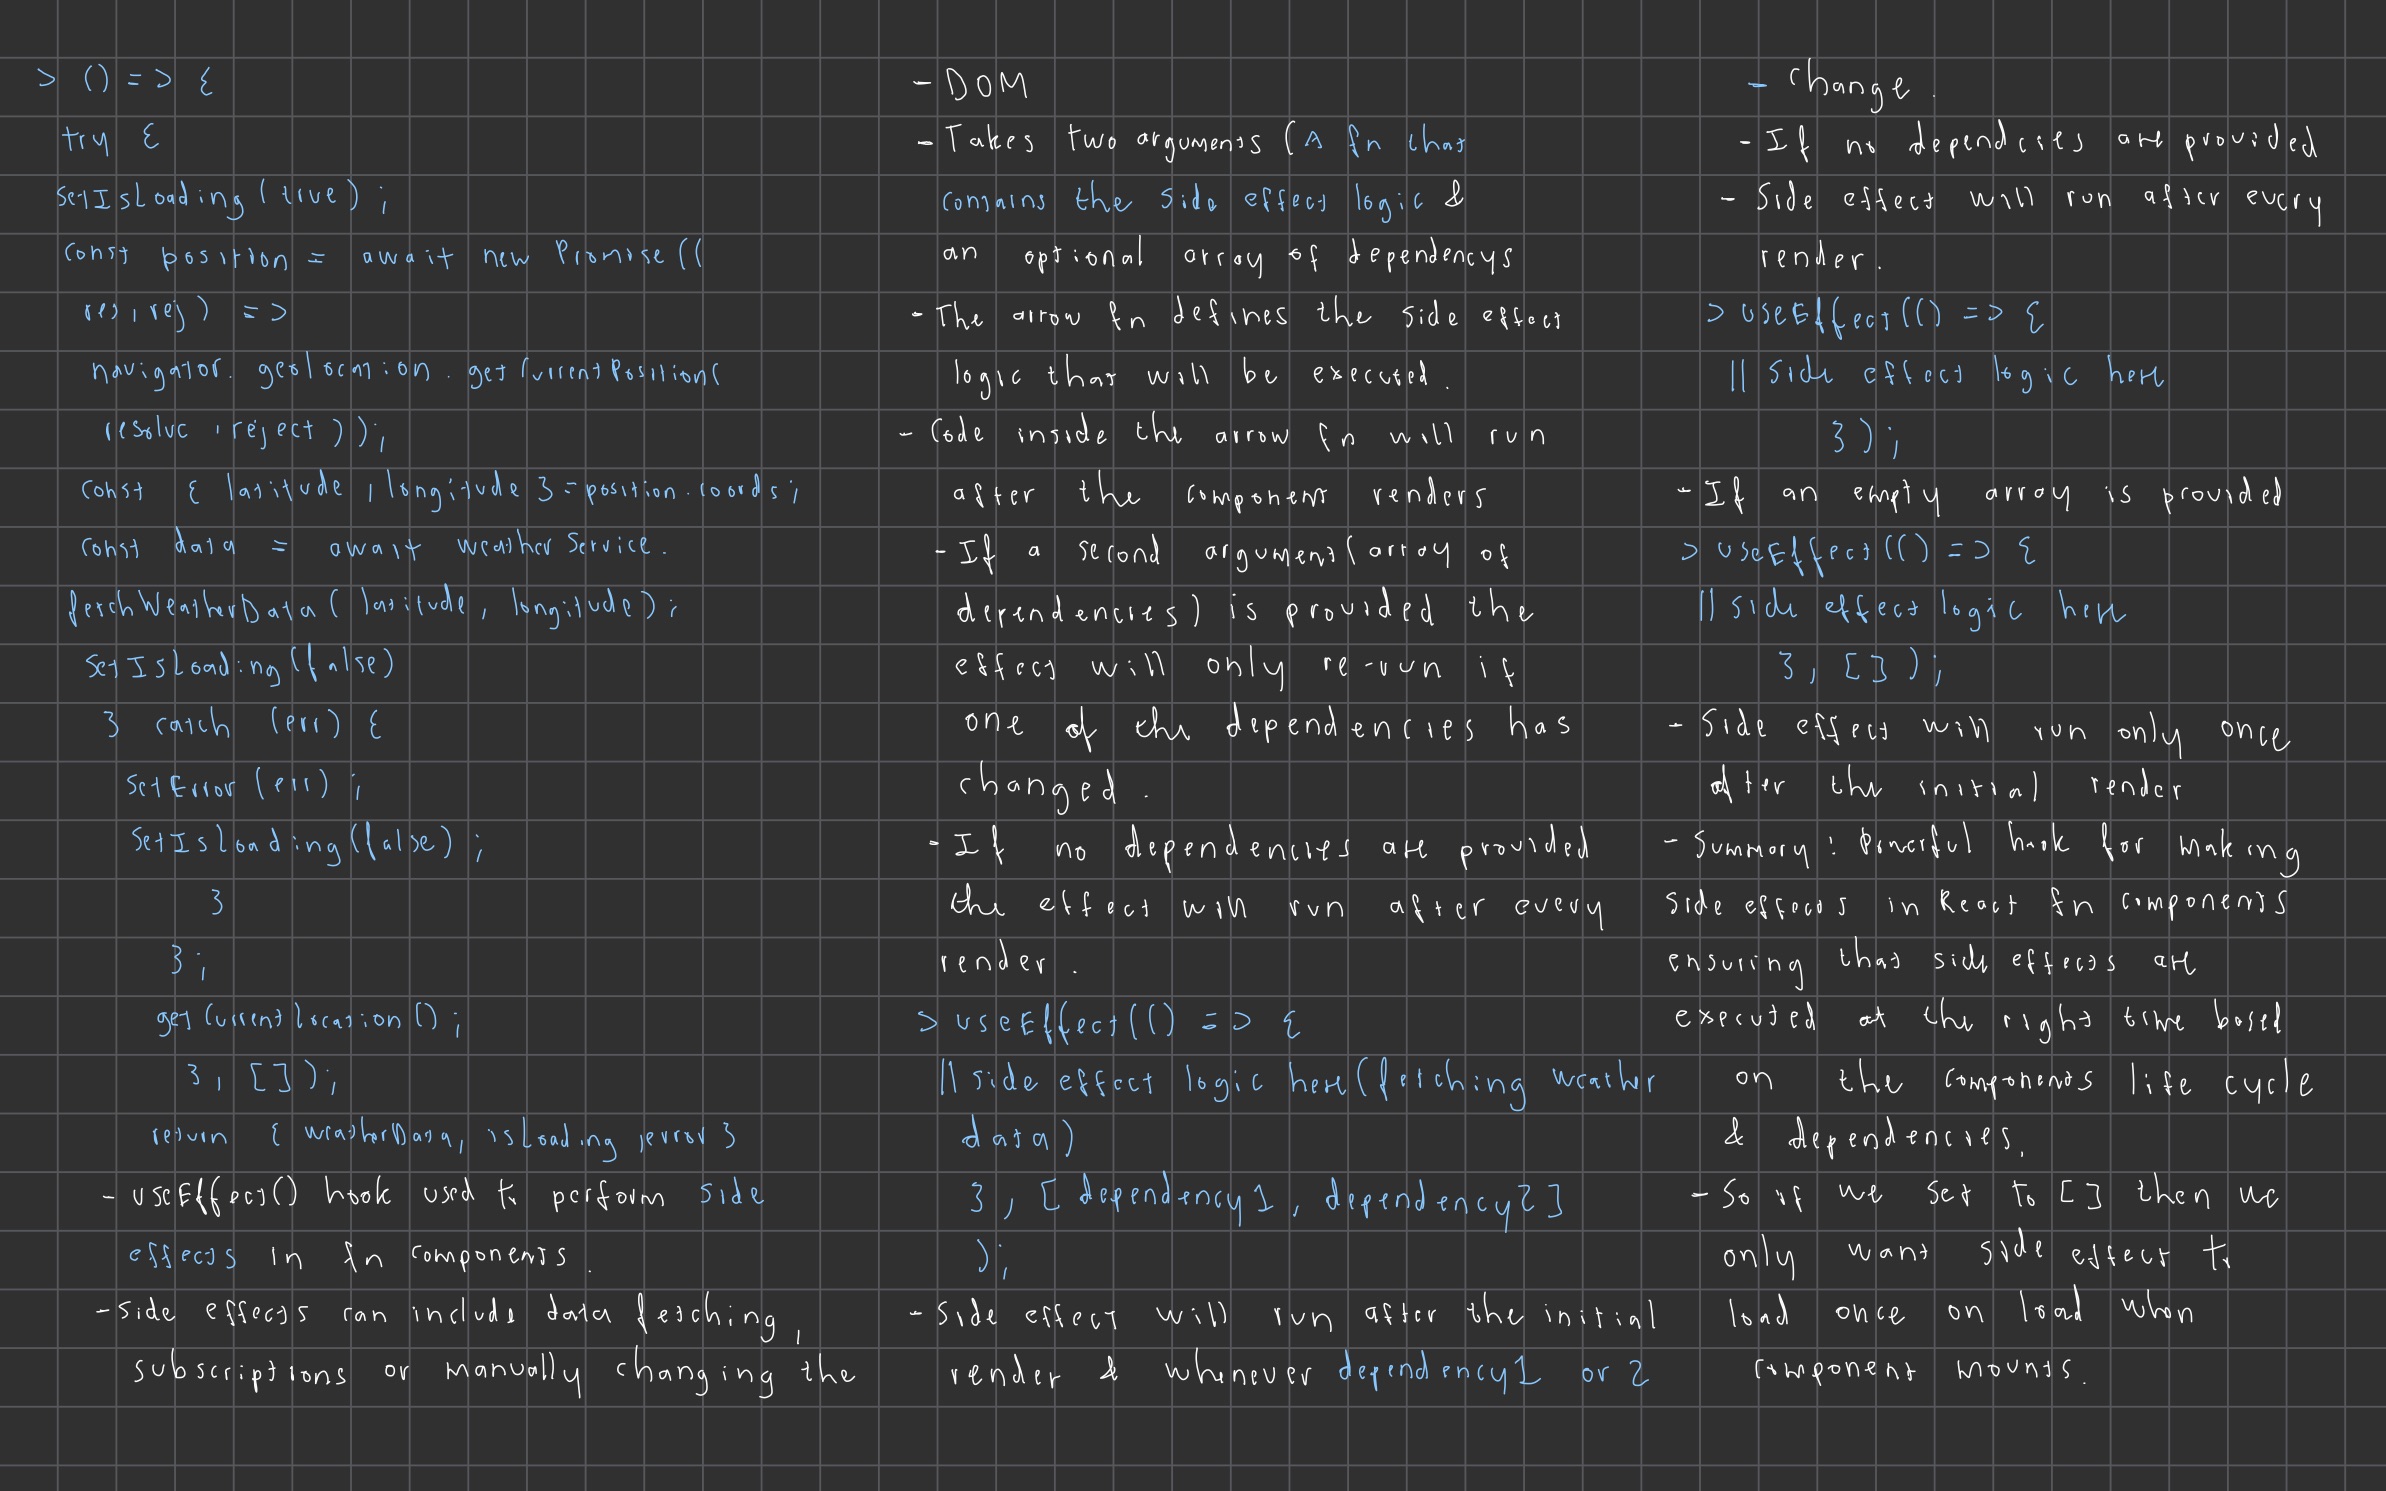 > () => {
try {
setIsLoading (true) ;
const position = await new Promise ((
res, rej) =>
navigator. geolocation. getCurrentPosition(
resolve , reject ));
const { latitude , longitude } = position.coords;
const data = await weatherService.
fetchWeatherData ( latitude, longitude);
setIsLoading (false)
} catch (err) {
setError (err) ;
setIsLoading (false) ;
}
} ;
getCurrentlocation () ;
} , [ ] );
return { weatherData, isLoading ,error }
- useEffect() hook used to perform side
effects in fn components.
- side effects can include data fetching,
subscriptions or manually changing the
- DOM
- Takes two arguments (A fn that
contains the side effect logic &
an optional array of dependencys
- The arrow fn defines the side effect
logic that will be executed.
- Code inside the arrow fn will run
after the component renders
- If a second argument (array of
dependencies) is provided the
effect will only re-run if
one of the dependencies has
changed.
- If no dependencies are provided
the effect will run after every
render.
> useEffect(() => {
// side effect logic here (fetching weather
data)
} , [ dependency1 , dependency2 ]
);
- Side effect will run after the initial
render & whenever dependency1 or 2
- change.
- If no dependcies are provided
- Side effect will run after every
render.
> useEffect(() => {
// side effect logic here
} ) ;
- If an empty array is provided
> useEffect(() => {
// side effect logic here
} , [ ] ) ;
- Side effect will run only once
after the initial render
- Summary : Powerful hook for making
side effects in React fn components
ensuring that side effects are
executed at the right time based
on the components life cycle
& dependencies.
- So if we set to [ ] then we
only want side effect to
load once on load when
component mounts.